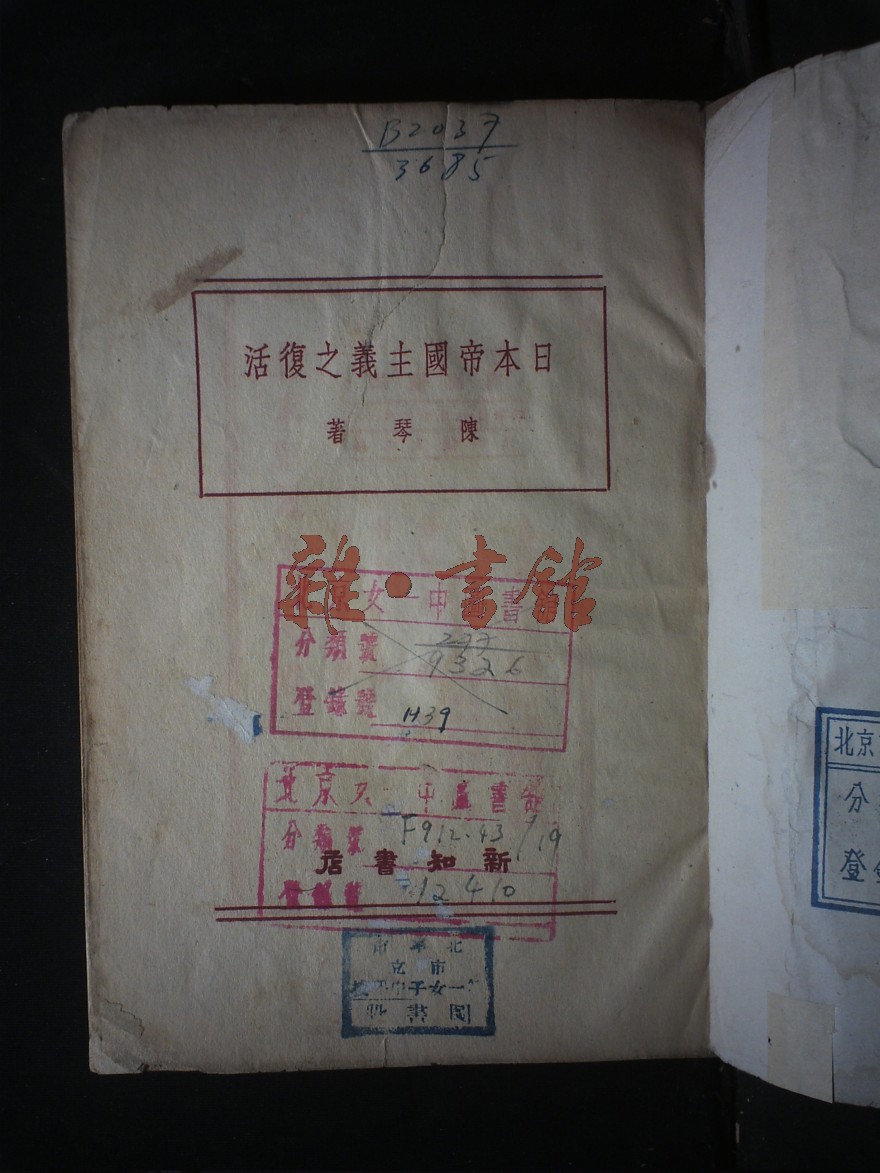 B2037
3685
日本帝國主義之復活
陳琴著
雜·書館
京女一中 書
分類號
277
4326
登錄號 1139
北京女一中圖書館
分類號 F912.43/19
新知書店
登錄號 12410
北京市
市立
一女子中
圖書
北京
分
登錄